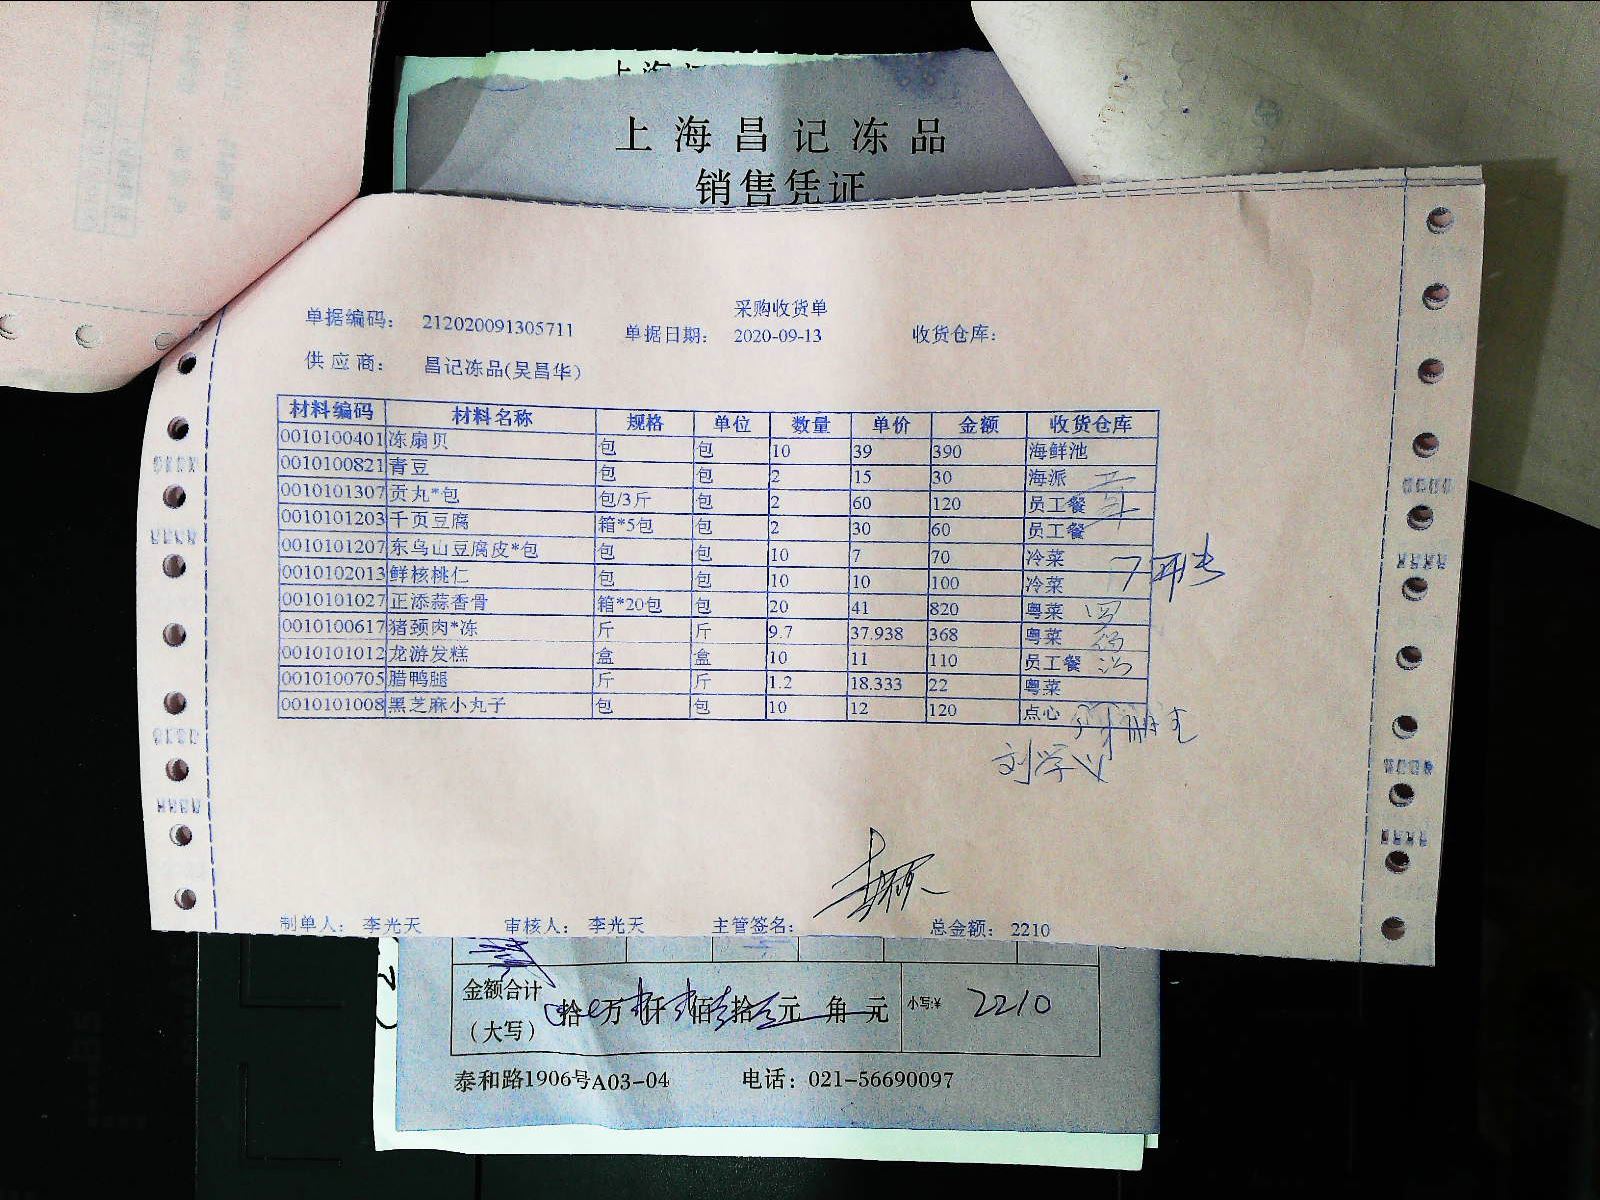 上海昌记冻品
销售凭证
采购收货单
单据编码： 212020091305711 单据日期： 2020-09-13 收货仓库：
供应商： 昌记冻品(吴昌华)
材料编码 材料名称 规格 单位 数量 单价 金额 收货仓库
0010100401 冻扇贝 包 包 10 39 390 海鲜池
0010100821 青豆 包 包 2 15 30 海派
0010101307 贡丸*包 包/3斤 包 2 60 120 员工餐
0010101203 千页豆腐 箱*5包 包 2 30 60 员工餐
0010101207 东乌山豆腐皮*包 包 包 10 7 70 冷菜
0010102013 鲜核桃仁 包 包 10 10 100 冷菜
0010101027 正添蒜香骨 箱*20包 包 20 41 820 粤菜
0010100617 猪颈肉*冻 斤 斤 9.7 37.938 368 粤菜
0010101012 龙游发糕 盒 盒 10 11 110 员工餐
0010100705 腊鸭腿 斤 斤 1.2 18.333 22 粤菜
0010101008 黑芝麻小丸子 包 包 10 12 120 点心
制单人： 李光天 审核人： 李光天 主管签名： 总金额： 2210
金额合计（大写） 拾 万 仟 佰 拾 元 角 元 小写:¥ 2210
泰和路1906号A03-04 电话：021-56690097